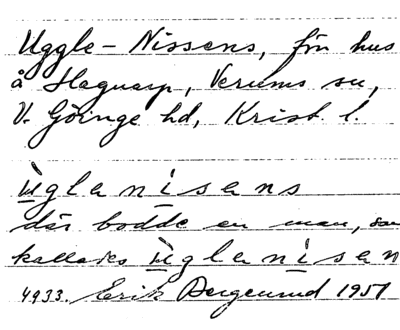 Uggle-Nissens, frn hus
å Slagnarp, Verums sn,
V. Göinge hd, Krist. l.
ùglanisens
där bodde en man, som
kallades ùglanisen
4933. Erik 1951